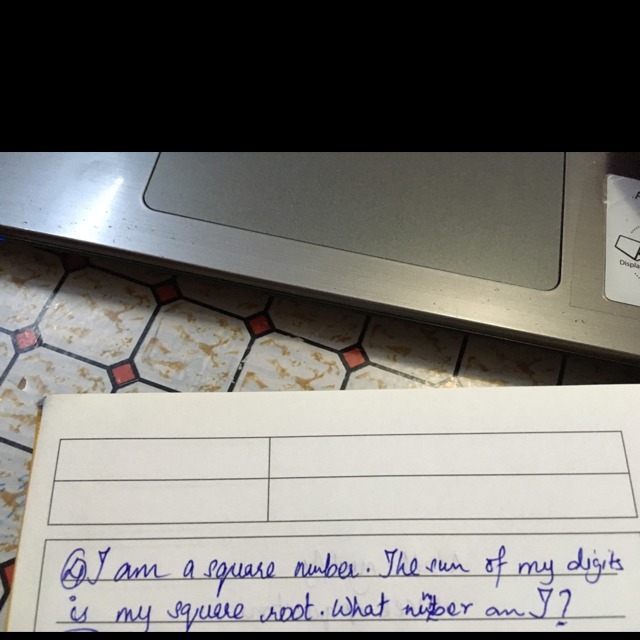 Displa
Q I am a square number. The sum of my digits
is my square root. What number am I?